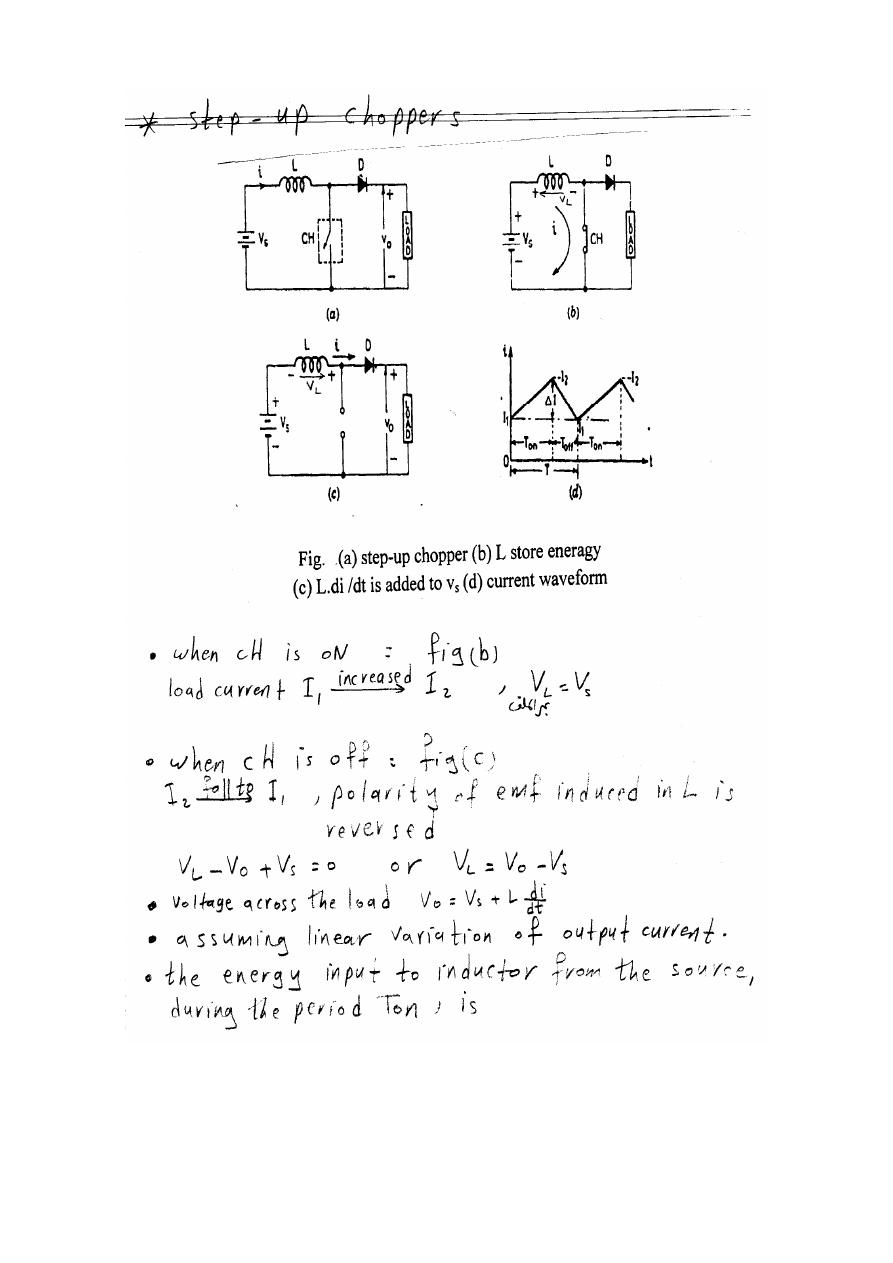 * step-up choppers
L D
i
+
Vs CH Vo LOAD
-
(a)
L D
+ VL -
+
Vs i CH LOAD
-
(b)
L i D
- VL + +
+
Vs Vo LOAD
-
-
(c)
i
I2 I2
ΔI
I1 I1
Ton Toff Ton
0 T t
(d)
Fig. (a) step-up chopper (b) L store eneragy
(c) L.di /dt is added to vs (d) current waveform
• when cH is oN : fig(b)
load current I1 increased I2 , VL = Vs
• when cH is off : fig(c)
I2 fall to I1 , polarity of emf induced in L is
reversed
VL - Vo + Vs = 0 or VL = Vo - Vs
• Voltage across the load Vo = Vs + L di/dt
• assuming linear variation of output current.
• the energy input to inductor from the source,
during the period Ton , is